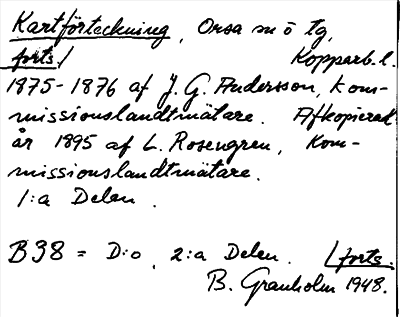 Kartförteckning, Orsa m ö tg,
forts./ Kopparb. l.
1875-1876 af J. G. Andersson, kom-
missionslandtmätare. Afkopierad
år 1895 af L. Rosengren, Kom-
missionslandtmätare.
1:a Delen.
B38 = D:o, 2:a Delen. /forts.
B. Granholm 1948.